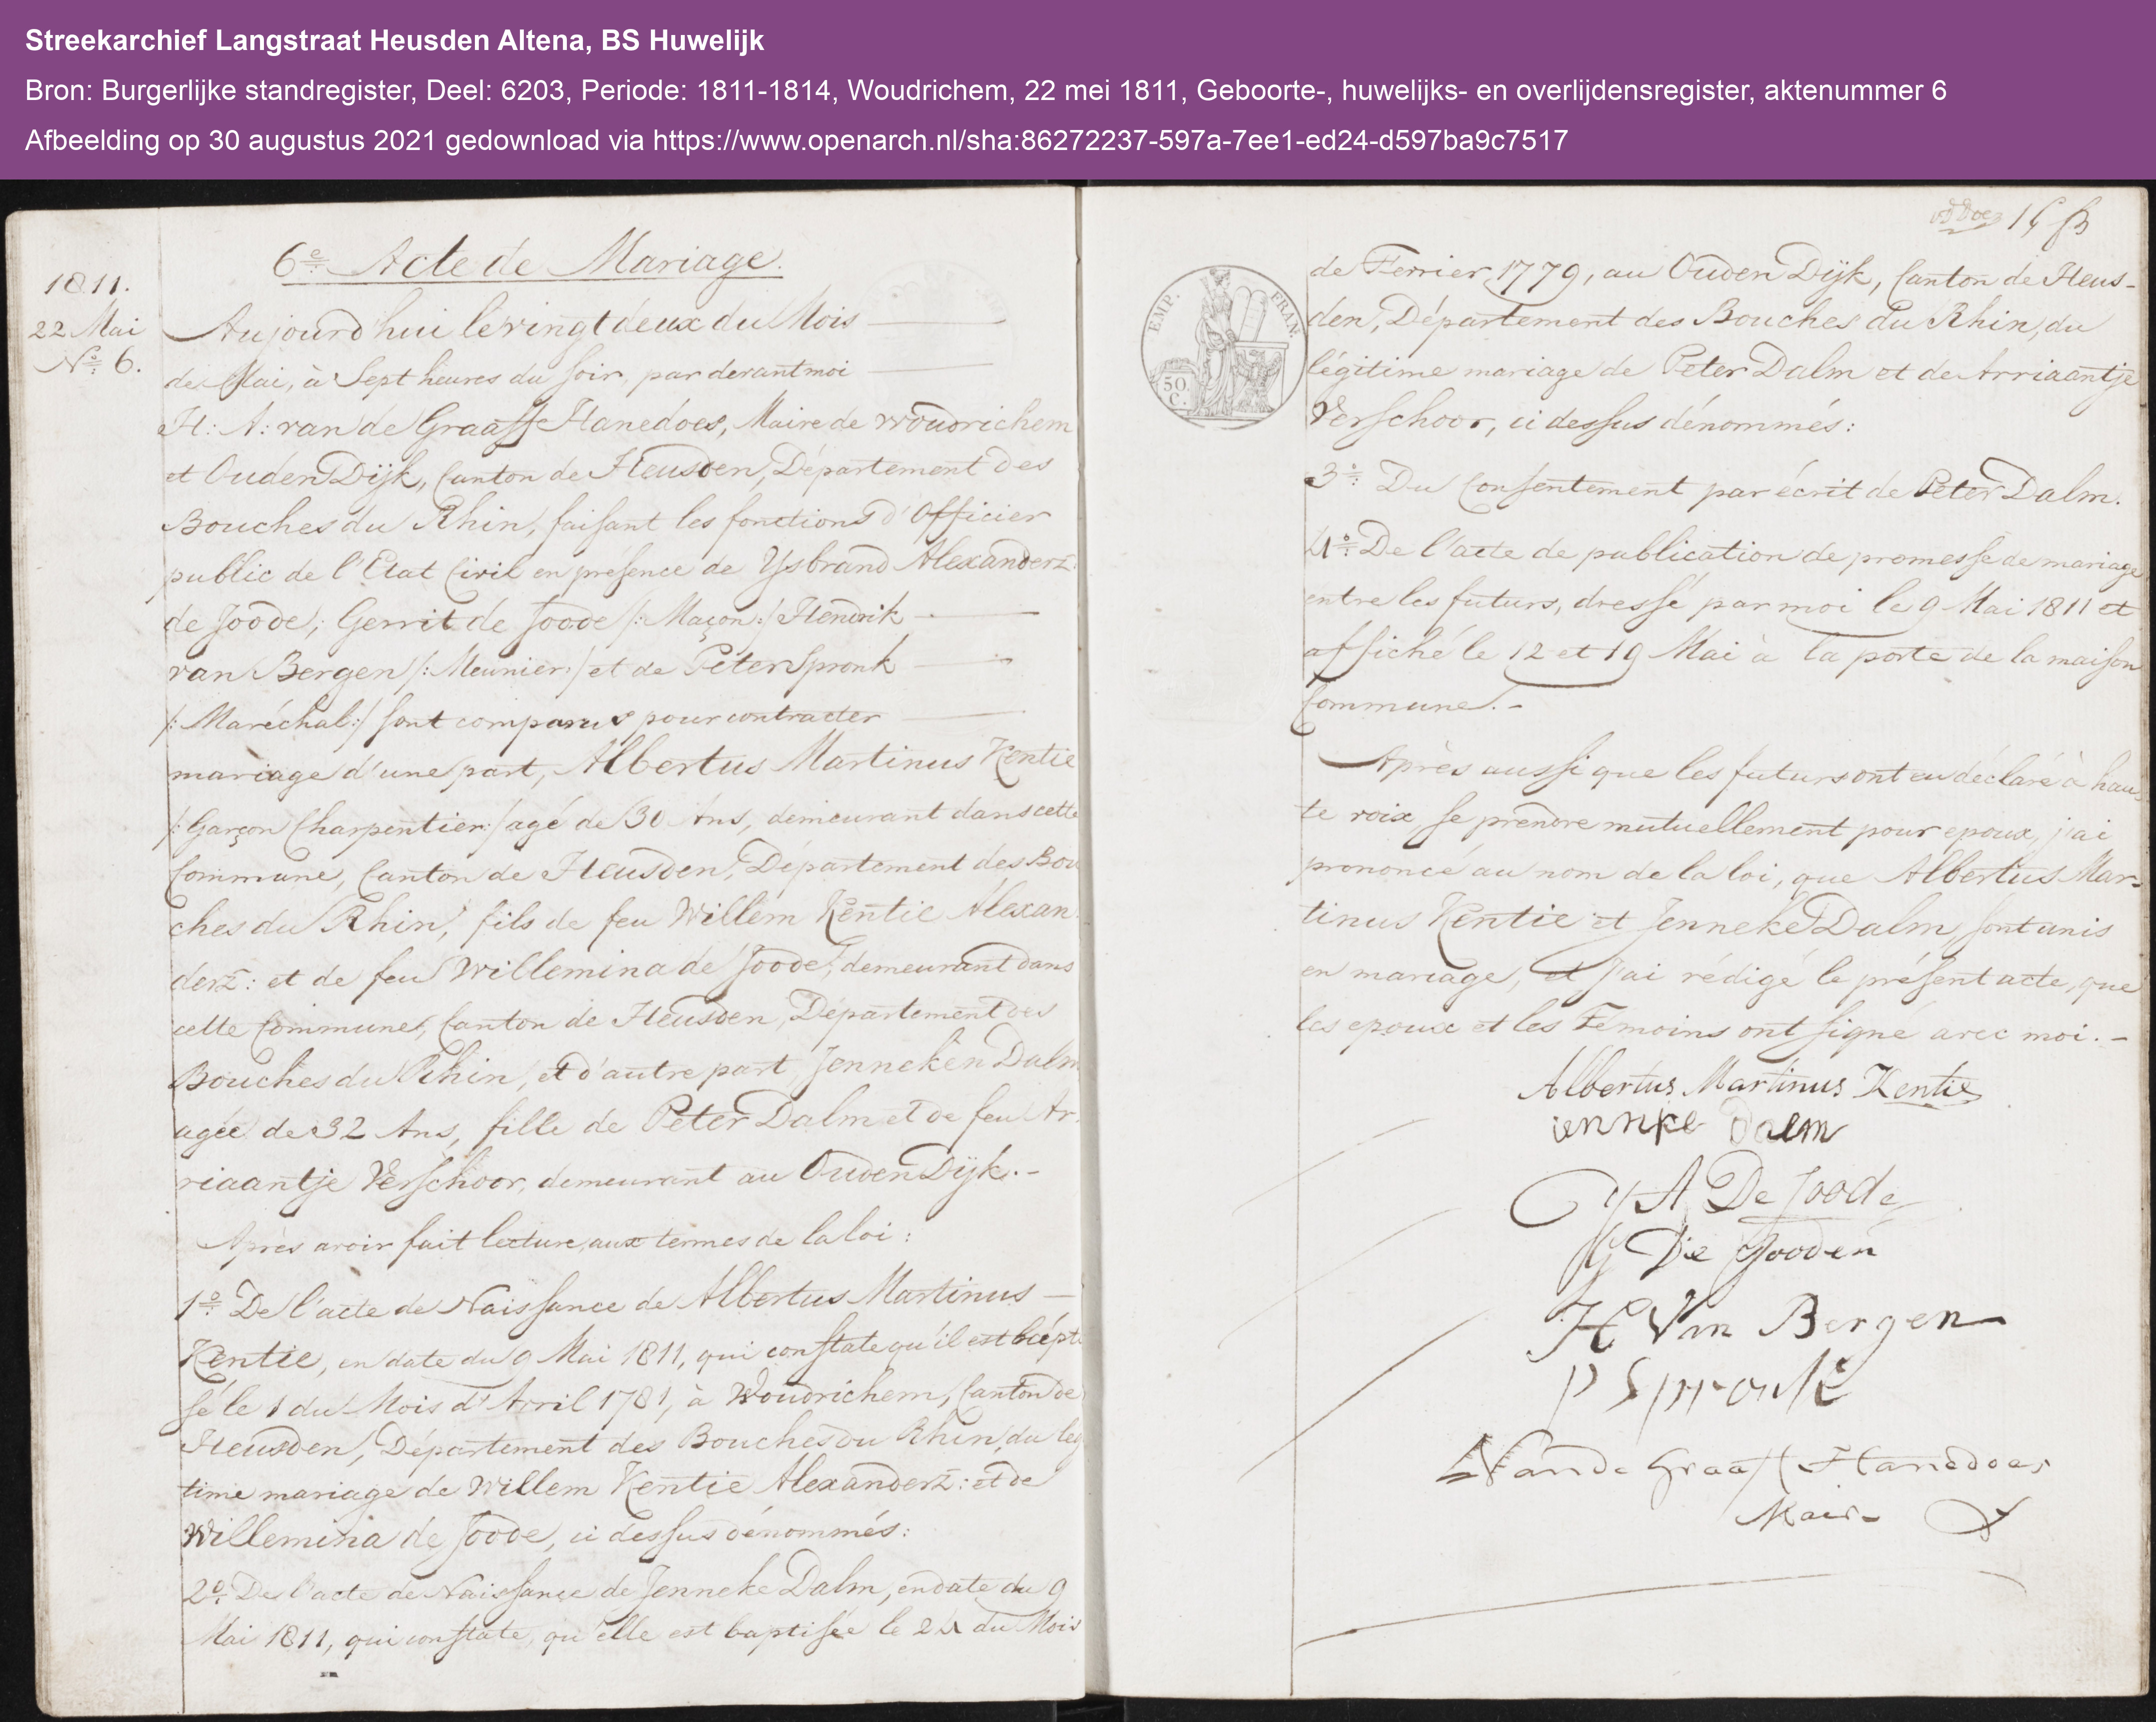 Streekarchief Langstraat Heusden Altena, BS Huwelijk
Bron: Burgerlijke standregister, Deel: 6203, Periode: 1811-1814, Woudrichem, 22 mei 1811, Geboorte-, huwelijks- en overlijdensregister, aktenummer 6
Afbeelding op 30 augustus 2021 gedownload via https://www.openarch.nl/sha:86272237-597a-7ee1-ed24-d597ba9c7517
1811.
22 Mai
No. 6.
6e. Acte de Mariage.
Aujourd'hui le vingt deux du Mois
de Mai, à Sept heures du soir, par devant moi
H: A: van de Graaff Hanedoes, Maire de Woudrichem
et Ouden Dijk, Canton de Heusden, Département des
Bouches du Rhin, faisant les fonctions d'Officier
public de l'Etat Civil en présence de Ysbrand Alexanderz:
de Joode; Gerrit de Joode /: Maçon :/ Hendrik
van Bergen /: Meunier :/ et de Peter Spronk
/: Maréchal :/ sont comparus pour contracter
mariage d'une part, Albertus Martinus Kentie
/: Garçon Charpentier :/ agé de 30 Ans, demeurant dans cette
Commune, Canton de Heusden, Département des Bou
ches du Rhin, fils de feu Willem Kentie Alexan
derz: et de feu Willemina de Joode, demeurant dans
cette Commune, Canton de Heusden, Département des
Bouches du Rhin, et d'autre part, Jenneken Dalm
agée de 32 Ans, fille de Peter Dalm et de feu Ar
riaantje Verschoor, demeurant au Ouden Dijk.-
Après avoir fait lecture, aux termes de la loi:
1o. De l'acte de Naissance de Albertus Martinus
Kentie, en date du 9 Mai 1811, qui constate qu'il est
sé le 1 du Mois d'Avril 1781, à Woudrichem, Canton de
Heusden, Département des Bouches du Rhin, du leg
time mariage de Willem Kentie Alexanderz: et de
Willemina de Joode, ci dessus dénommés:
2o. De l'acte de Naissance de Jenneke Dalm, en date du 9
Mai 1811, qui constate, qu'elle est baptisée le 24 du Mois
EMP. FRAN.
50 C.
de Fevrier 1779, au Ouden Dijk, Canton de Heus-
den, Département des Bouches du Rhin, du
légitime mariage de Peter Dalm et de Arriaantje
Verschoor, ci dessus dénommés:
3o. Du Consentement par écrit de Peter Dalm.
4o. De l'acte de publication de promesse de mariage
entre les futurs, dressé par moi le 9 Mai 1811 et
affiché le 12 et 19 Mai à la porte de la maison
Commune.-
Après aussi que les futurs ont eu déclaré à hau-
te voix, se prendre mutuellement pour epoux, j'ai
prononcé au nom de la loi, que Albertus Mar-
tinus Kentie et Jenneke Dalm, sont unis
en mariage, et j'ai rédigé le présent acte, que
les epoux et les Témoins ont signé avec moi.-
Albertus Martinus Kentie
ienneke Dalm
Y A De Joode
G De Jooden
H Van Bergen
P Spronk
Van de Graaff Hanedoes
Maire